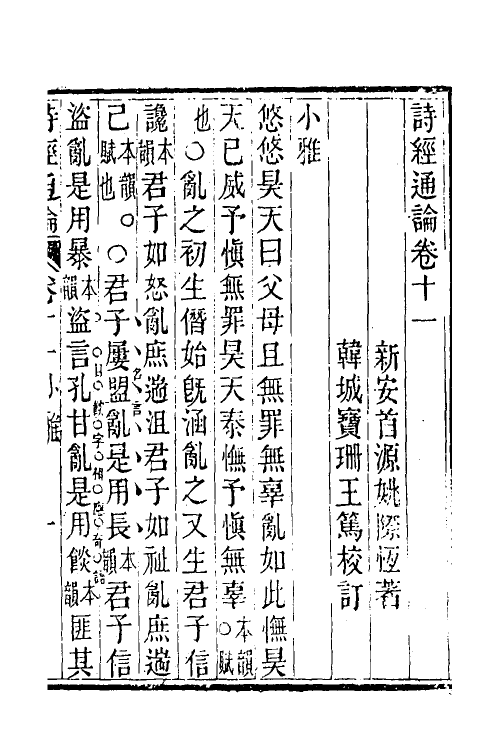 詩經通論卷十一
新安首源姚際恆著
韓城寶珊王篤校訂
小雅
悠悠昊天曰父母且無罪無辜亂如此憮昊
天已威予慎無罪昊天泰憮予慎無辜本韻○賦
也○亂之初生僭始旣涵亂之又生君子信
讒本韻君子如怒亂庶遄沮君子如祉亂庶遄
己本韻○賦也○君子屢盟亂是用長本韻君子信
盜亂是用暴本韻盜言孔甘亂是用餤本韻匪其
詩經通論 卷十一小雅 一